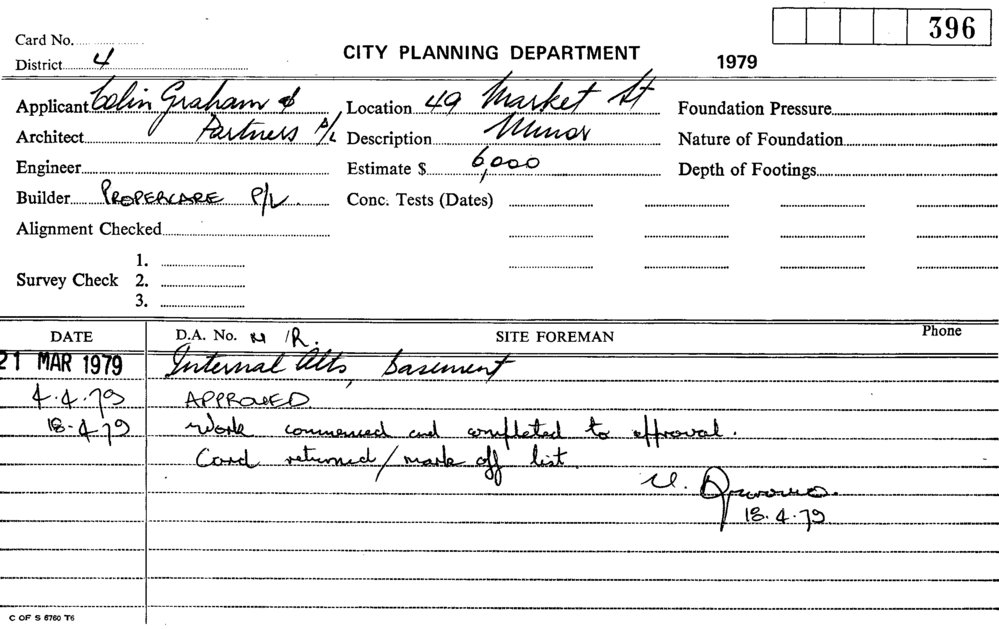 396
Card No.
CITY PLANNING DEPARTMENT 1979
District 4
Applicant Colin Graham & Location 49 Market St Foundation Pressure
Architect Partners P/L Description Minor Nature of Foundation
Engineer Estimate $ 6,000 Depth of Footings
Builder PROPERCARE P/L. Conc. Tests (Dates)
Alignment Checked
1.
Survey Check 2.
3.
DATE D.A. No. N/R. SITE FOREMAN Phone
21 MAR 1979 Internal Alts, basement
4.4.79 APPROVED
18-4.79 Work commenced and completed to approval.
Card returned/mark off list.
18.4.79
C OF S 6760 T6